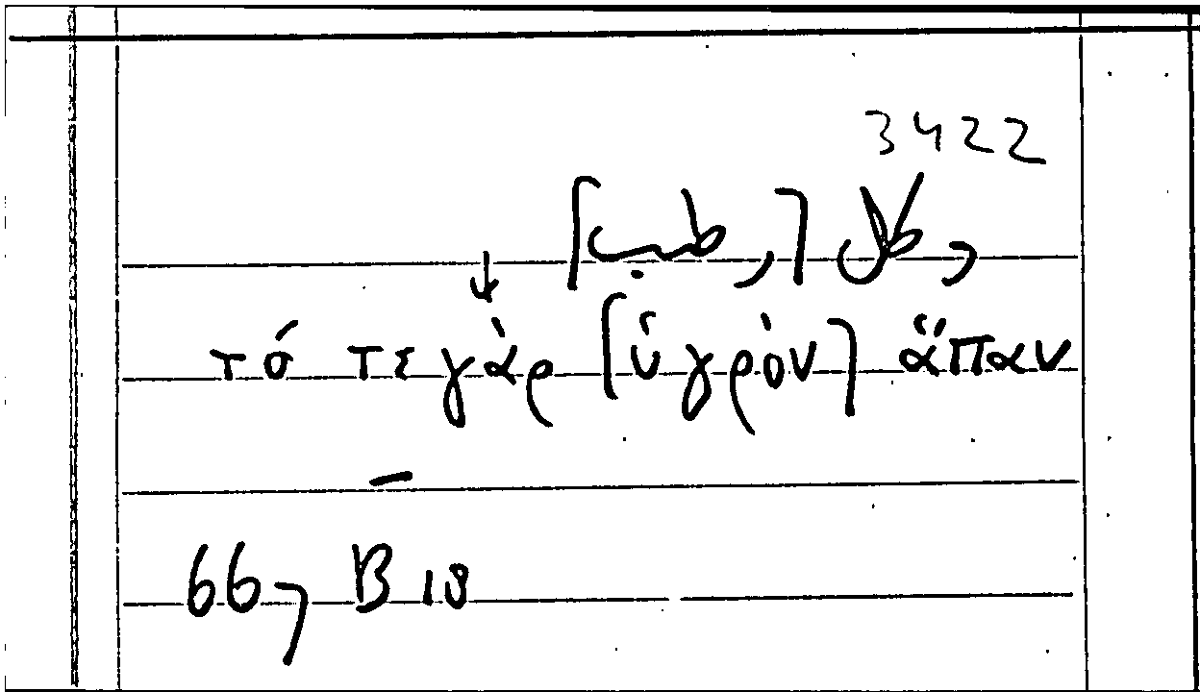 3422
[رطب]
τό τε γὰρ [ὑγρὸν] ἅπαν
66, B 18